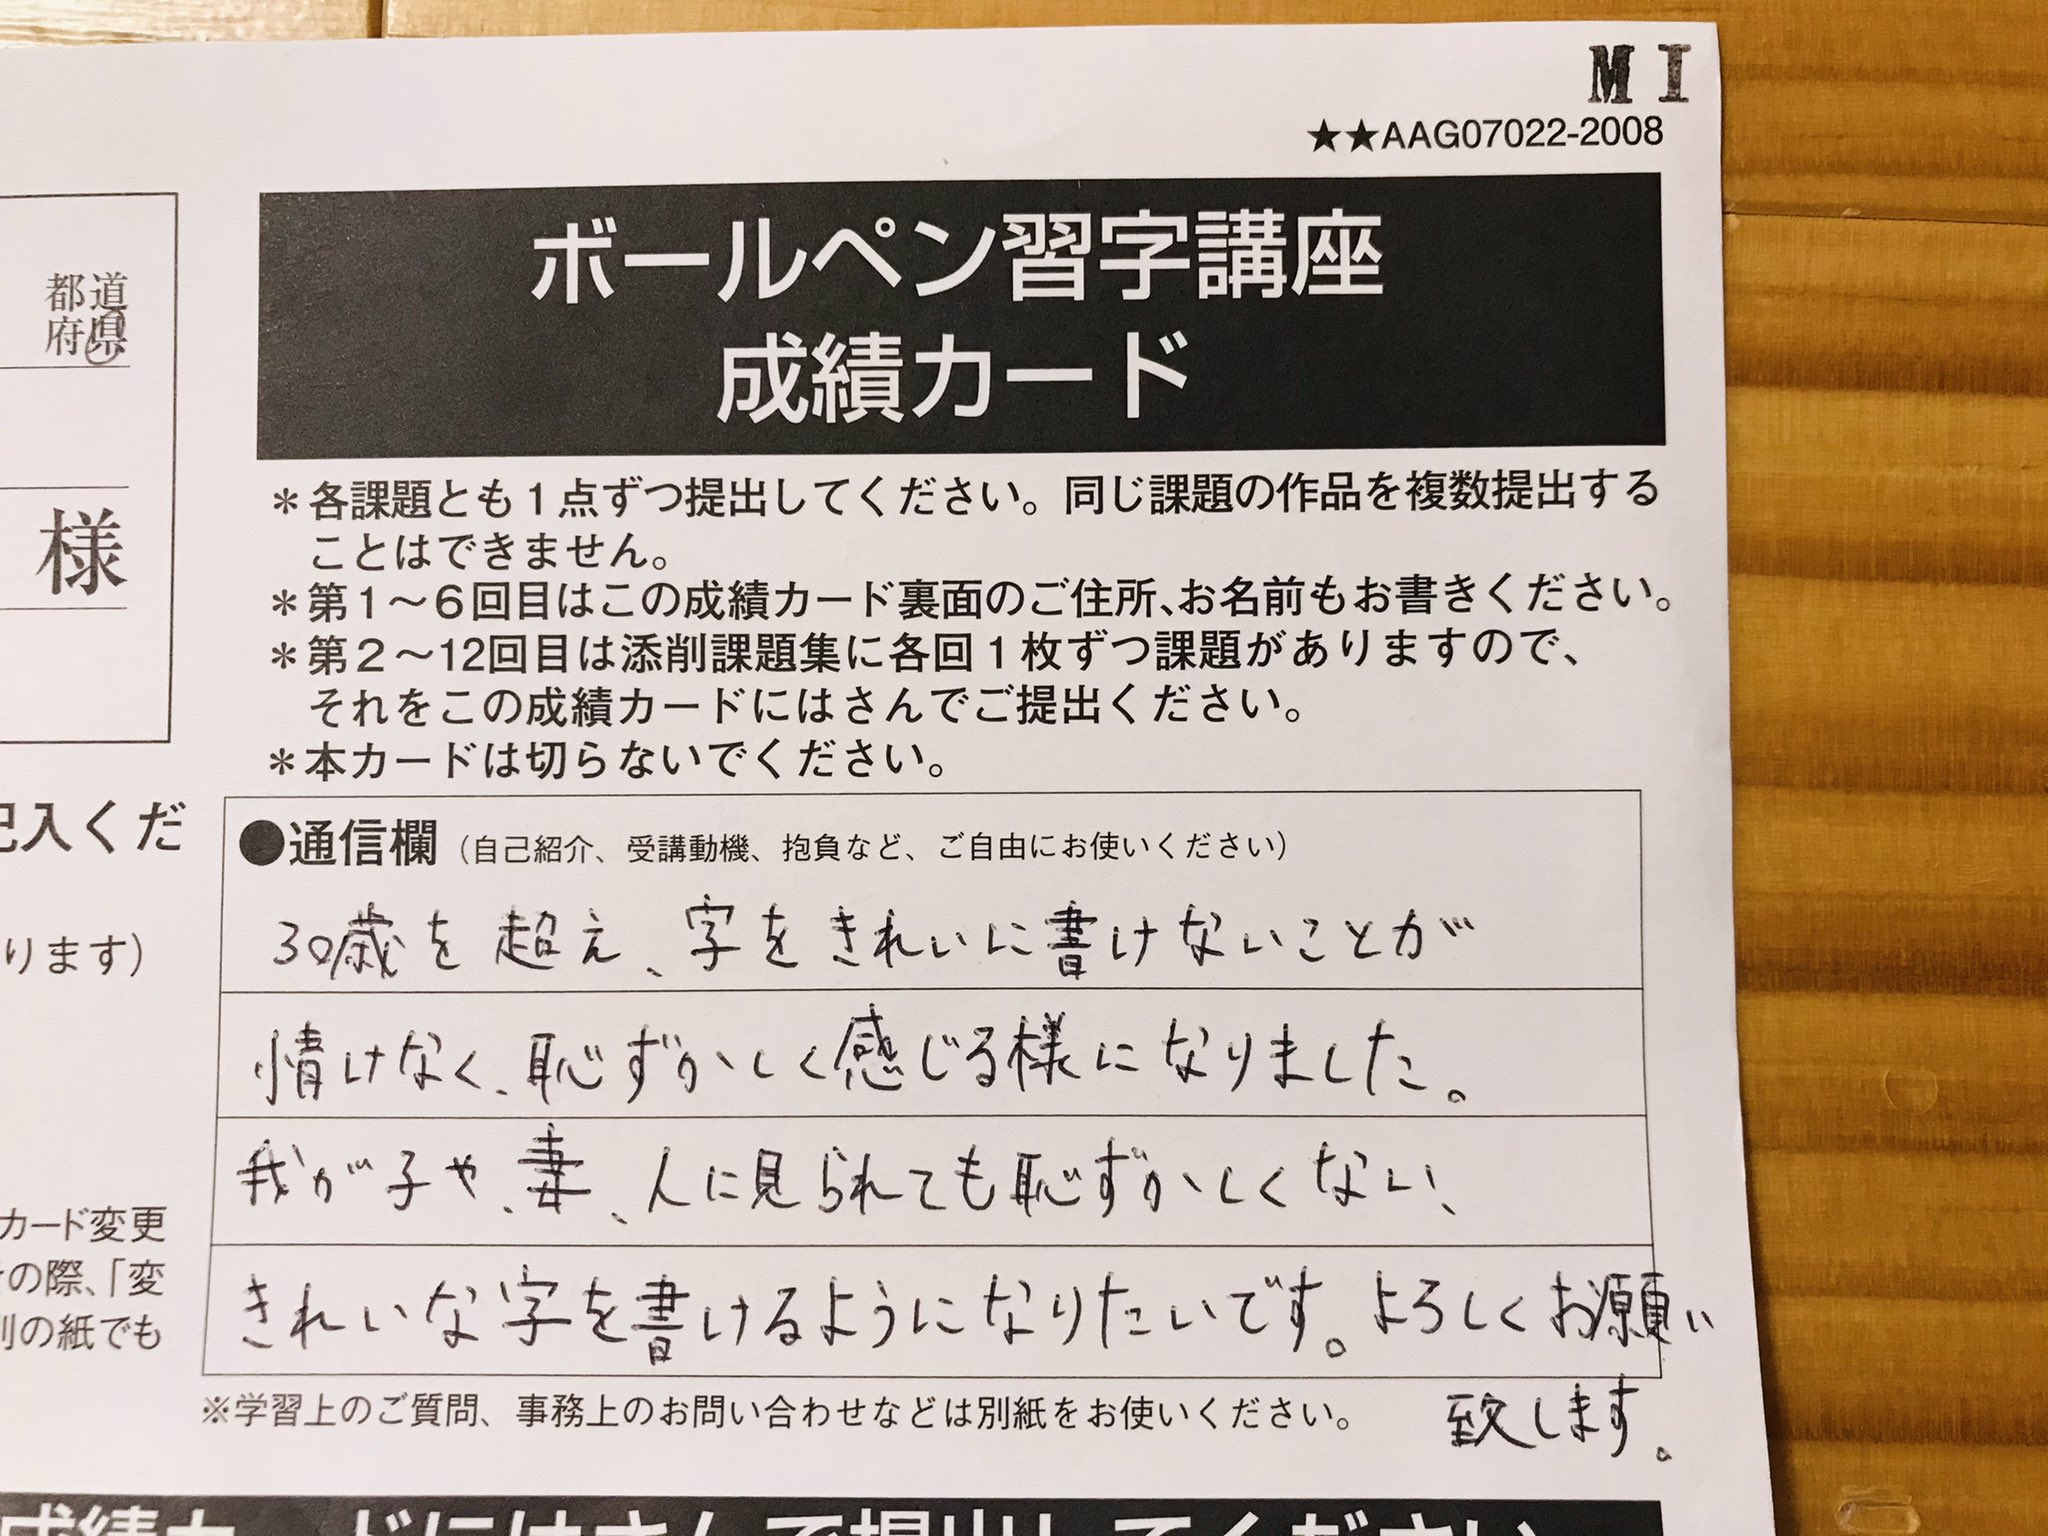 MI
★★AAG07022-2008
ボールペン習字講座
成績カード
都道
府県
様
＊各課題とも1点ずつ提出してください。同じ課題の作品を複数提出する
ことはできません。
＊第1～6回目はこの成績カード裏面のご住所、お名前もお書きください。
＊第2～12回目は添削課題集に各回1枚ずつ課題がありますので、
それをこの成績カードにはさんでご提出ください。
＊本カードは切らないでください。
記入くだ
ります）
カード変更
の際、「変
別の紙でも
●通信欄（自己紹介、受講動機、抱負など、ご自由にお使いください）
30歳を超え、字をきれいに書けないことが
情けなく、恥ずかしく感じる様になりました。
我が子や、妻、人に見られても恥ずかしくない、
きれいな字を書けるようになりたいです。よろしくお願い
致します。
※学習上のご質問、事務上のお問い合わせなどは別紙をお使いください。
成績カードにはさんで提出してください